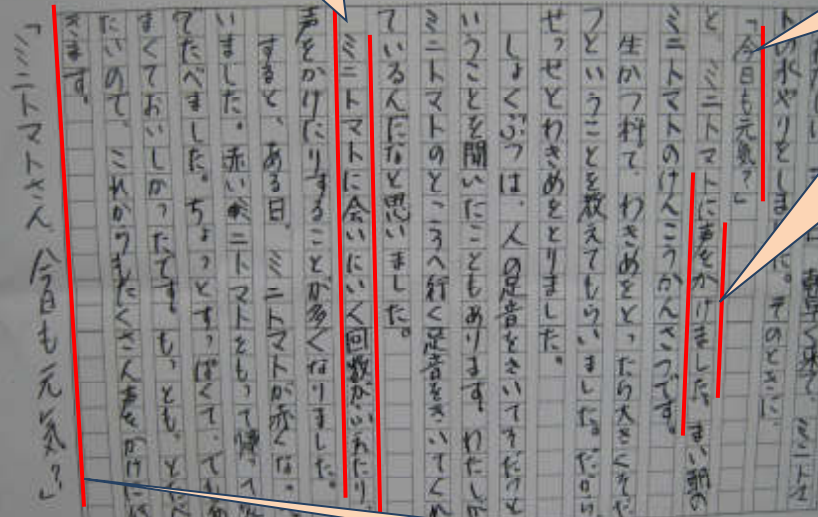 朝早く来て、ミニトマ
トの水やりをしました。そのときに、
「今日も元気？」
と、ミニトマトに声をかけました。まい朝の
ミニトマトのけんこうかんさつです。
生かつ科で、わきめをとったら大きくそだ
つということを教えてもらいました。だから
せっせとわきめをとりました。
しょくぶつは、人の足音をきいてそだつと
いうことを聞いたこともあります。わたしが
ミニトマトのところへ行く足音をきいてくれ
ているんだなと思いました。
ミニトマトに会いにいく回数がふえたり、
声をかけたりすることが多くなりました。
すると、ある日、ミニトマトが赤くなっ
いました。赤いミニトマトをもって帰って
てたべました。ちょっとすっぱくて、でもあ
まくておいしかったです。もっと、もっと
たいので、これからもたくさん声をかけに
きます。
「ミニトマトさん、今日も元気？」